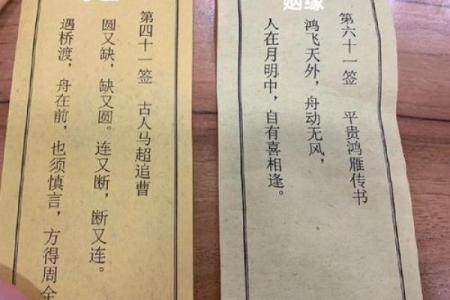 第四十一签 古人马超追曹
圆又缺,缺又圆。连又断,断又连。
遇桥渡,舟在前,也须慎言,方得周全
姻缘
第六十一签 平贵鸿雁传书
鸿飞天外,舟动无风,
人在月明中,自有喜相逢。